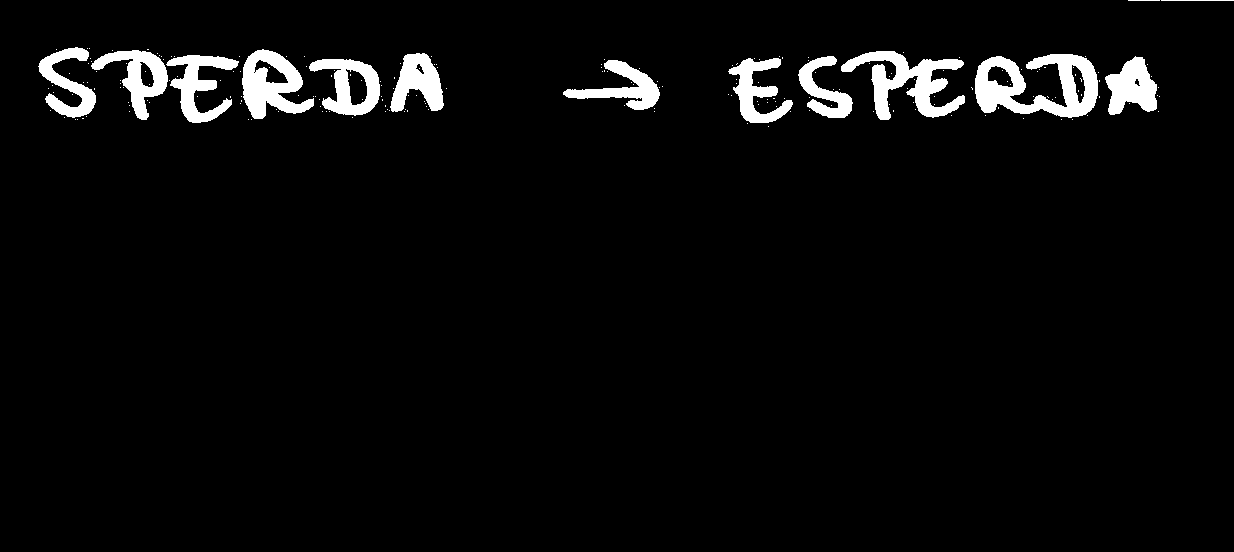 SPERDA → ESPERDA